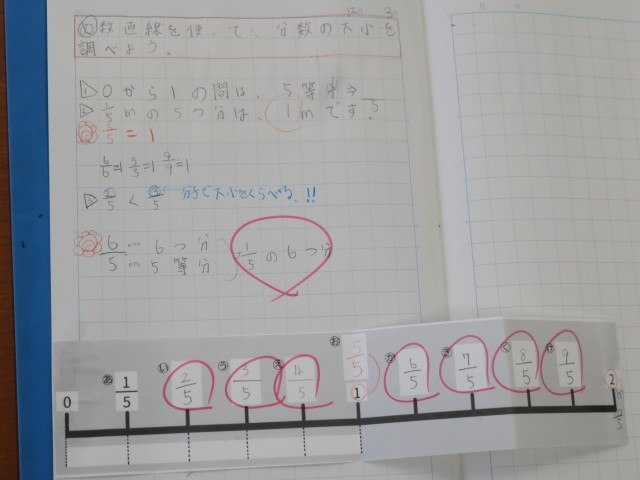 め 数直線を使って、分数の大小を
調べよう。
▷ 0から1の間は、5等分
▷ 1/5 mの5つ分は、1mです。
5/5 = 1
6/6=1 5/5=1 9/9=1
▷ 2/5 < 3/5 分子で大小をくらべる!!
6/5 … 6つ分
… 5等分
1/5の6つ分
あ い う え お か き く け
1/5 2/5 3/5 4/5 5/5 6/5 7/5 8/5 9/5
0 1 2